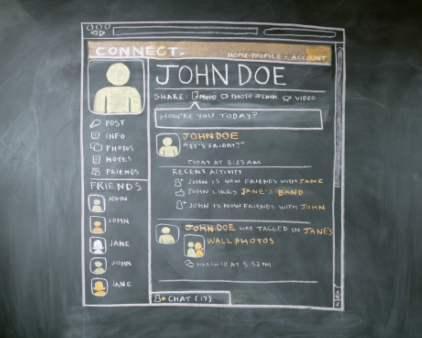 CONNECT.
HOME • PROFILE • ACCOUNT
JOHN DOE
SHARE: PHOTO VIDEO
HOW'RE YOU TODAY?
JOHN DOE
"IT'S FRIDAY!"
TODAY AT 5:23AM
RECENT ACTIVITY
JOHN IS NEW FRIENDS WITH JANE
JOHN LIKES JANE'S BAND
JOHN IS NOW FRIENDS WITH JOHN
JOHN DOE WAS TAGGED IN JANES
WALL PHOTOS
MARCH 10 AT 5:32PM
POST
INFO
PHOTOS
NOTES
FRIENDS
FRIENDS
JOHN
JOHN
JANE
JOHN
JANE
CHAT (17)